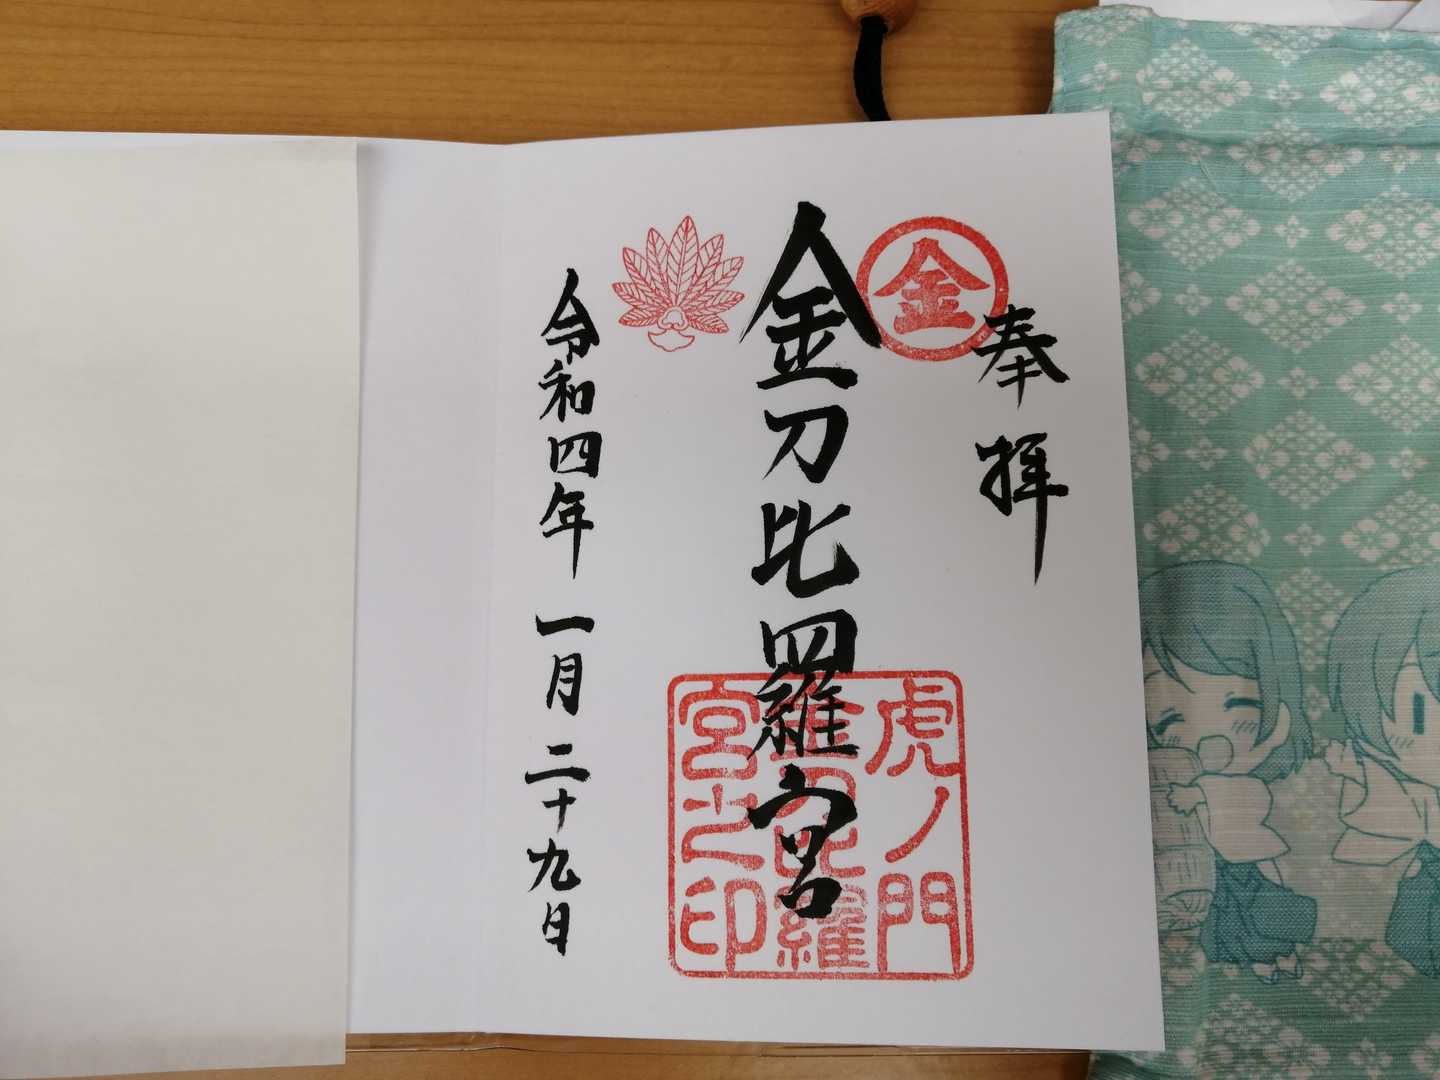 奉拝
金
金刀比羅宮
虎ノ門
金刀比羅
宮之印
令和四年一月二十九日